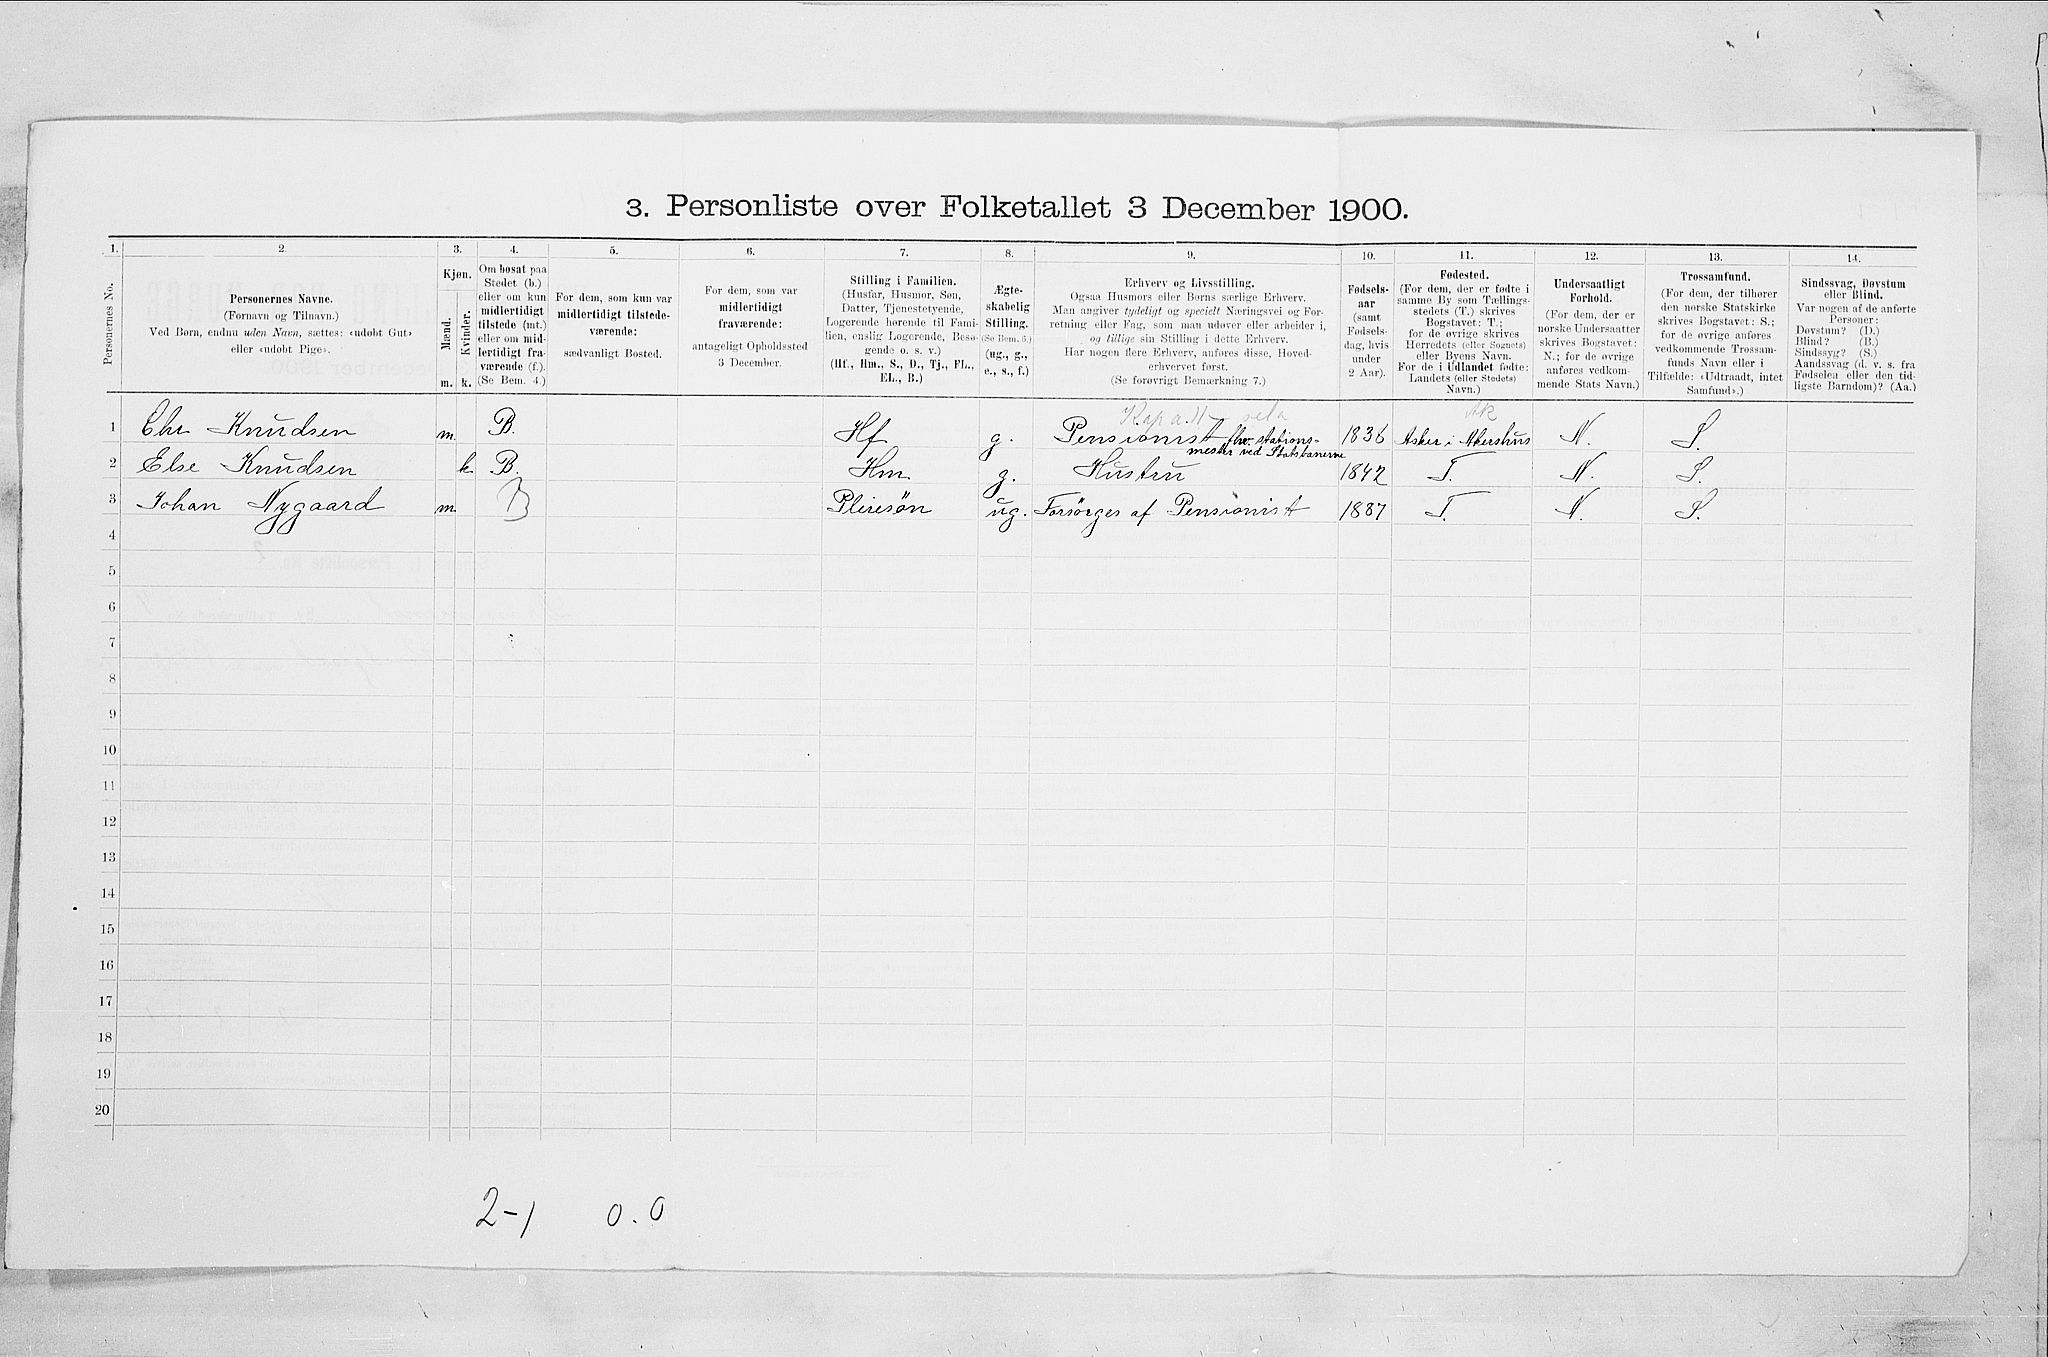 3. Personliste over Folketallet 3 December 1900.
1. 2. 3. 4. 5. 6. 7. 8. 9. 10. 11. 12. 13. 14.
Personernes No.
Personernes Navne.
(Fornavn og Tilnavn.)
Ved Børn, endnu uden Navn, sættes: «udøbt Gut»
eller «udøbt Pige».
Kjøn.
Mænd.
Kvinder.
m. k.
Om bosat paa
Stedet (b.)
eller om kun
midlertidigt
tilstede (mt.)
eller om mid-
lertidigt fra-
værende (f.).
(Se Bem. 4.)
For dem, som kun var
midlertidigt tilstede-
værende:
sædvanligt Bosted.
For dem, som var
midlertidigt
fraværende:
antageligt Opholdssted
3 December.
Stilling i Familien.
(Husfar, Husmor, Søn,
Datter, Tjenestetyende,
Logerende hørende til Fami-
lien, enslig Logerende, Besø-
gende o. s. v.)
(Hf., Hm., S., D., Tj., FL.,
EL., B.)
Ægte-
skabelig
Stilling.
(Se Bem. 6.)
(ug., g.,
e., s., f.)
Erhverv og Livsstilling.
Ogsaa Husmors eller Børns særlige Erhverv.
Man angiver tydeligt og specielt Næringsvei og For-
retning eller Fag, som man udøver eller arbeider i,
og tillige sin Stilling i dette Erhverv.
Har nogen flere Erhverv, anføres disse, Hoved-
erhvervet først.
(Se forøvrigt Bemærkning 7.)
Fødsels-
aar
(samt
Fødsels-
dag, hvis
under
2 Aar).
Fødested.
(For dem, der er fødte i
samme By som Tællings-
stedets (T.) skrives
Bogstavet: T.;
for de øvrige skrives
Herredets (eller Sognets)
eller Byens Navn.
For de i Udlandet fødte:
Landets (eller Stedets)
Navn.)
Undersaatligt
Forhold.
(For dem, der er
norske Undersaatter
skrives Bogstavet:
N.; for de øvrige
anføres vedkom-
mende Stats Navn.)
Trossamfund.
(For dem, der tilhører
den norske Statskirke
skrives Bogstavet: S.;
for de øvrige anføres
vedkommende Trossam-
funds Navn eller i
Tilfælde: «Udtraadt, intet
Samfund».)
Sindssvag, Døvstum
eller Blind.
Var nogen af de anførte
Personer:
Døvstum? (D.)
Blind? (B.)
Sindssyg? (S.)
Aandssvag (d. v. s. fra
Fødselen eller den tid-
ligste Barndom)? (Aa.)
Ak
1 Chr Knudsen m. B. Hf g. Pensionist fhv. stations- 1836 Asker i Akershus N. S.
mester ved Statsbanerne
2 Else Knudsen k. B. Hm g. Hustru 1842 T. N. S.
3 Johan Nygaard m B Pleiesøn ug. Forsørges af Pensionist 1887 T. N. S.
4
5
6
7
8
9
10
11
12
13
14
15
16
17
18
19
20
2-1 0.0